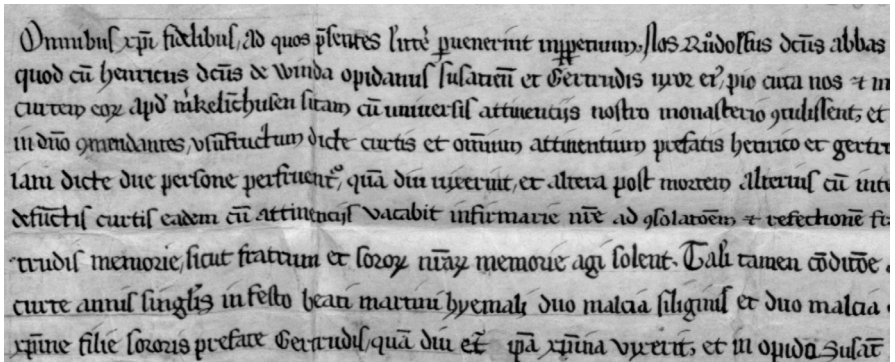 Omnibus xpi fidelibus, ad quos psentes litte puenerint inppetuum. Nos Rudolfus dcus abbas
quod cu henricus dcus de Winda opidanus susatien et Gertrudis uxor ei, pio circa nos et in
curtem eoꝝ apd mkelichusen sitam cu universis attinentijs nostro monasterio ꝯtulissent, et
in dno ꝯmendantes, usufructum dicte curtis et omium attinentium prefatis henrico et gertru
iam dicte due persone perfruent, qua diu uixerint, et altera post mortem alterius cu inte
defunctis curtis eadem cu attinencijs vacabit infirmarie nre ad ꝯsolatoem et refectione fr
trudis memorie, sicut fratrum et soroꝝ nraꝝ memorie agi solent. Tali tamen coditoe
curte annis singlis in festo beati martini hyemali duo malcia siliginis et duo malcia
xpine filie sororis prefate Gertrudis, qua diu et ipa xpina vixerit, et in opido Susat